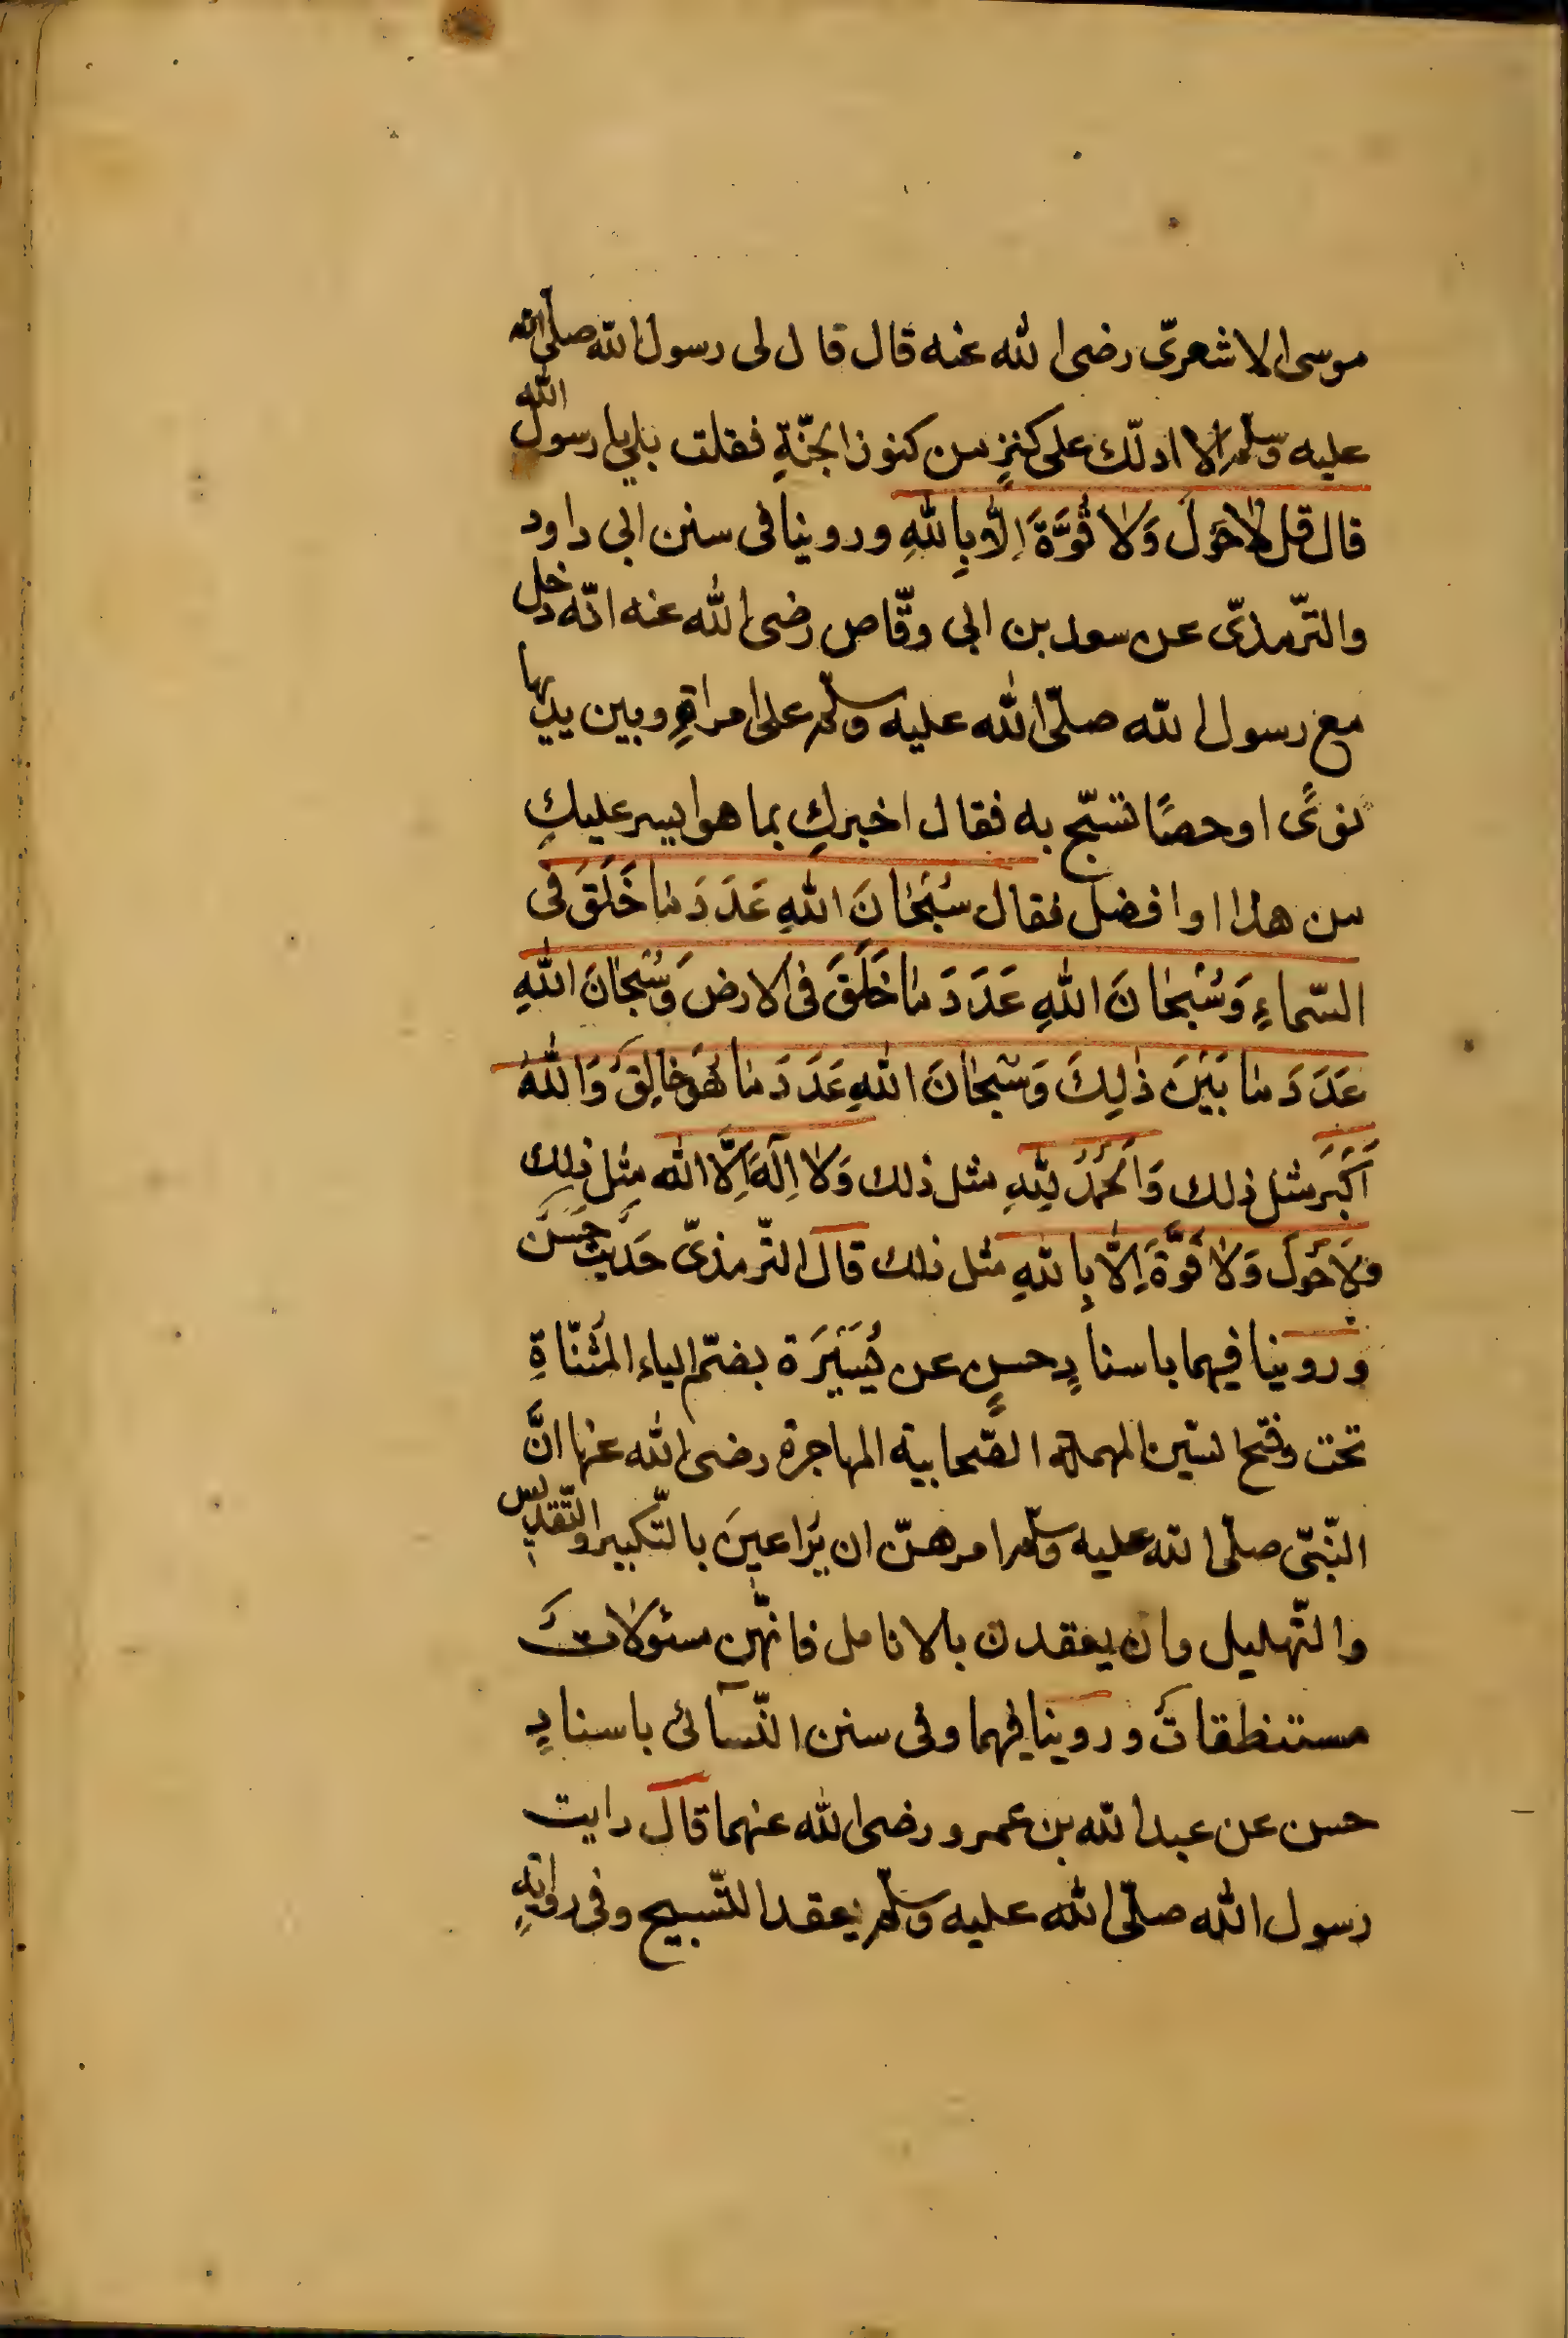 موسى الاشعرىّ رضى الله عنه قال قال لى رسول الله صلّى الله
عليه وسلّم الا ادلّك على كنزٍ من كنوز الجنّةِ فقلت بلى يا رسول الله
قال قل لا حَوْلَ وَلَا قُوَّةَ اِلَّا بِاللهِ وروينا فى سنن ابى داود
والتّرمذىّ عن سعد بن ابى وقّاص رضى الله عنه انّه دخل
مع رسول الله صلّى الله عليه وسلّم على امراةٍ وبين يديها
نوىً او حصًا تسبّح به فقال اخبركِ بما هو ايسر عليكِ
من هذا او افضل فقال سُبْحَانَ اللهِ عَدَدَ مَا خَلَقَ فى
السّماءِ وَسُبْحَانَ اللهِ عَدَدَ مَا خَلَقَ فى الارض وَسُبْحَانَ اللهِ
عَدَدَ مَا بَيْنَ ذٰلِكَ وَسُبْحَانَ اللهِ عَدَدَ مَا هُوَ خَالِقٌ وَاللهُ
اَكْبَرُ مثل ذلك وَالْحَمْدُ لِلّٰهِ مثل ذلك وَلَا اِلٰهَ اِلَّا الله مِثل ذلك
وَلَا حَوْلَ وَلَا قُوَّةَ اِلَّا بِاللهِ مثل ذلك قال التّرمذىّ حَديث حَسَنٌ
وروينا فيهما باسنادٍ حسنٍ عن يُسَيْرَة بضمّ الياء المثَنّاةِ
تحت وفتح السّين المهملة الصّحابية المهاجرة رضى الله عنها انَّ
النّبىّ صلّى الله عليه وسلّم امرهنّ ان يُرَاعينَ بالتّكبير والتّقديسِ
والتّهليل وان يعقدن بالانامل فانّهن مسئولاتٌ
مستنطقاتٌ وروينا فيهما وفى سنن النّسآئى باسنادٍ
حسن عن عبد الله بن عمرو رضى الله عنهما قال رايت
رسول الله صلّى الله عليه وسلّم يعقد التّسبيح وفى روايةٍ